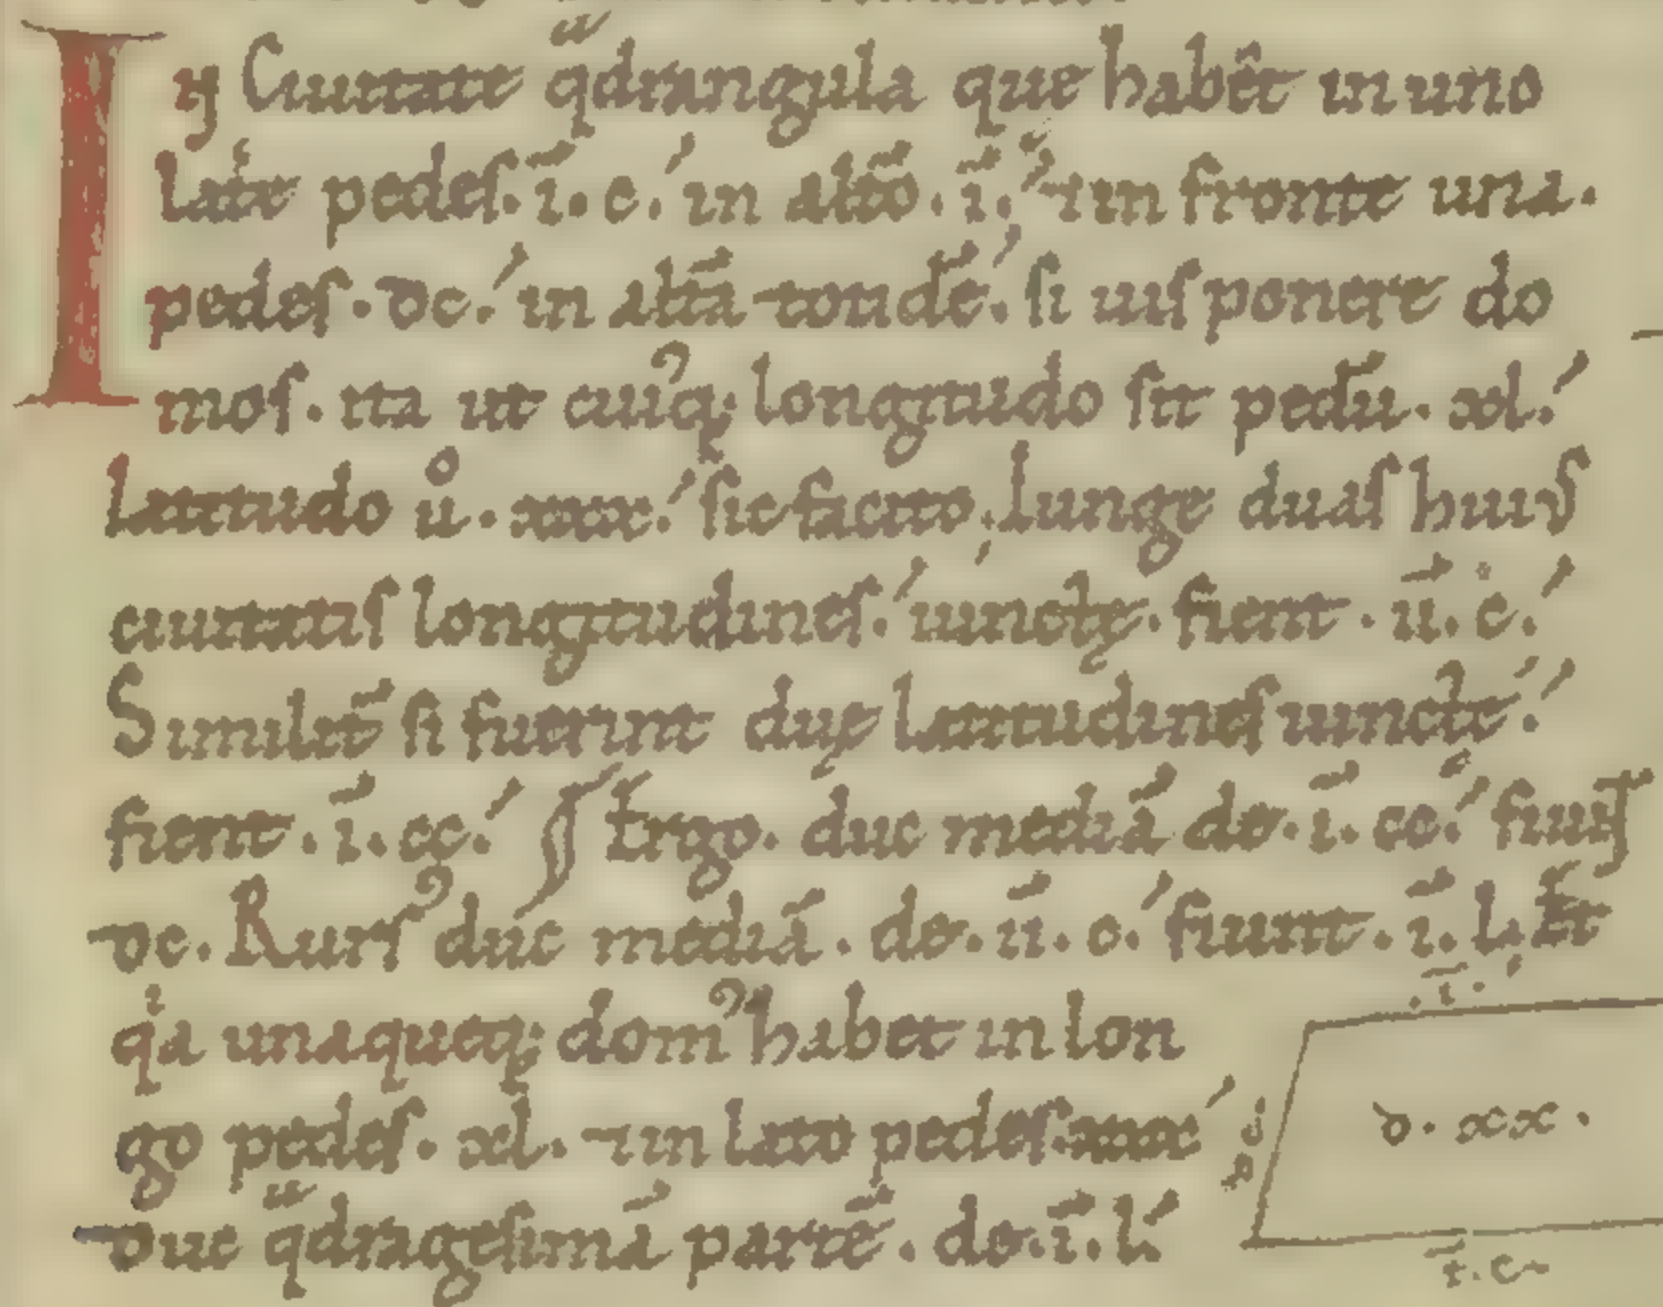 IN Ciuitate qͣdrangula que habe͂t in uno
latͥe pedes. ī. c. in alt̄o. ī. ⁊ in fronte una.
pedes. dc. in alt̄a totid̄e. si uis ponere do
mos. ita ut cuiꝰq; longitudo sit pedū. xl.
Latitudo uͦ. xxx. sic facito. Iunge duas huiꝰ
ciuitatis longitudines. iunctę. fient. īī. c.
Similit̄ si fuerint duę latitudines iuncte.
fient. ī. cc. Ergo. duc mediā de. ī. cc. fiunt
dc. Rursꝰ duc mediā. de. īī. c. fiunt. ī. l. Et
qͥa unaqueq; domꝰ habet in lon
go pedes. xl. ⁊ in lato pedes. xxx
duc qͣdragesimā partē. de. ī. l.
.ī.
d. xx.
ī. c